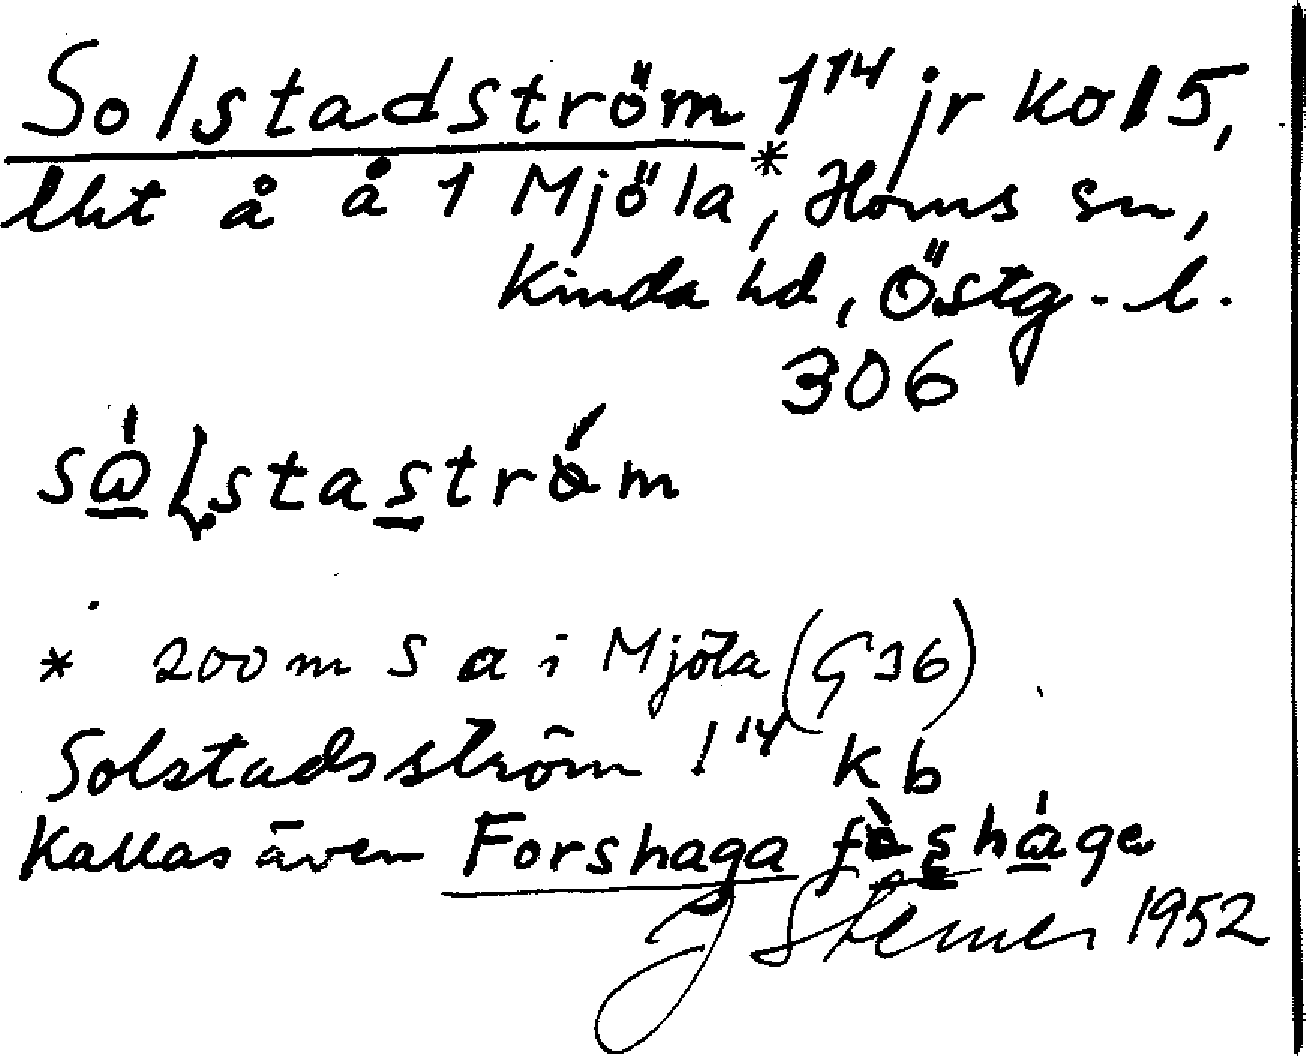 Solstadström 1¹⁴ jr ko 15,
lht å å 1 Mjöla*, Horns sn,
Kinda hd, Östg.l.
306
* 200 m S a i Mjöla (G 36)
Solstadsström 1¹⁴ kb
Kallas även Forshaga
J Sterner 1952